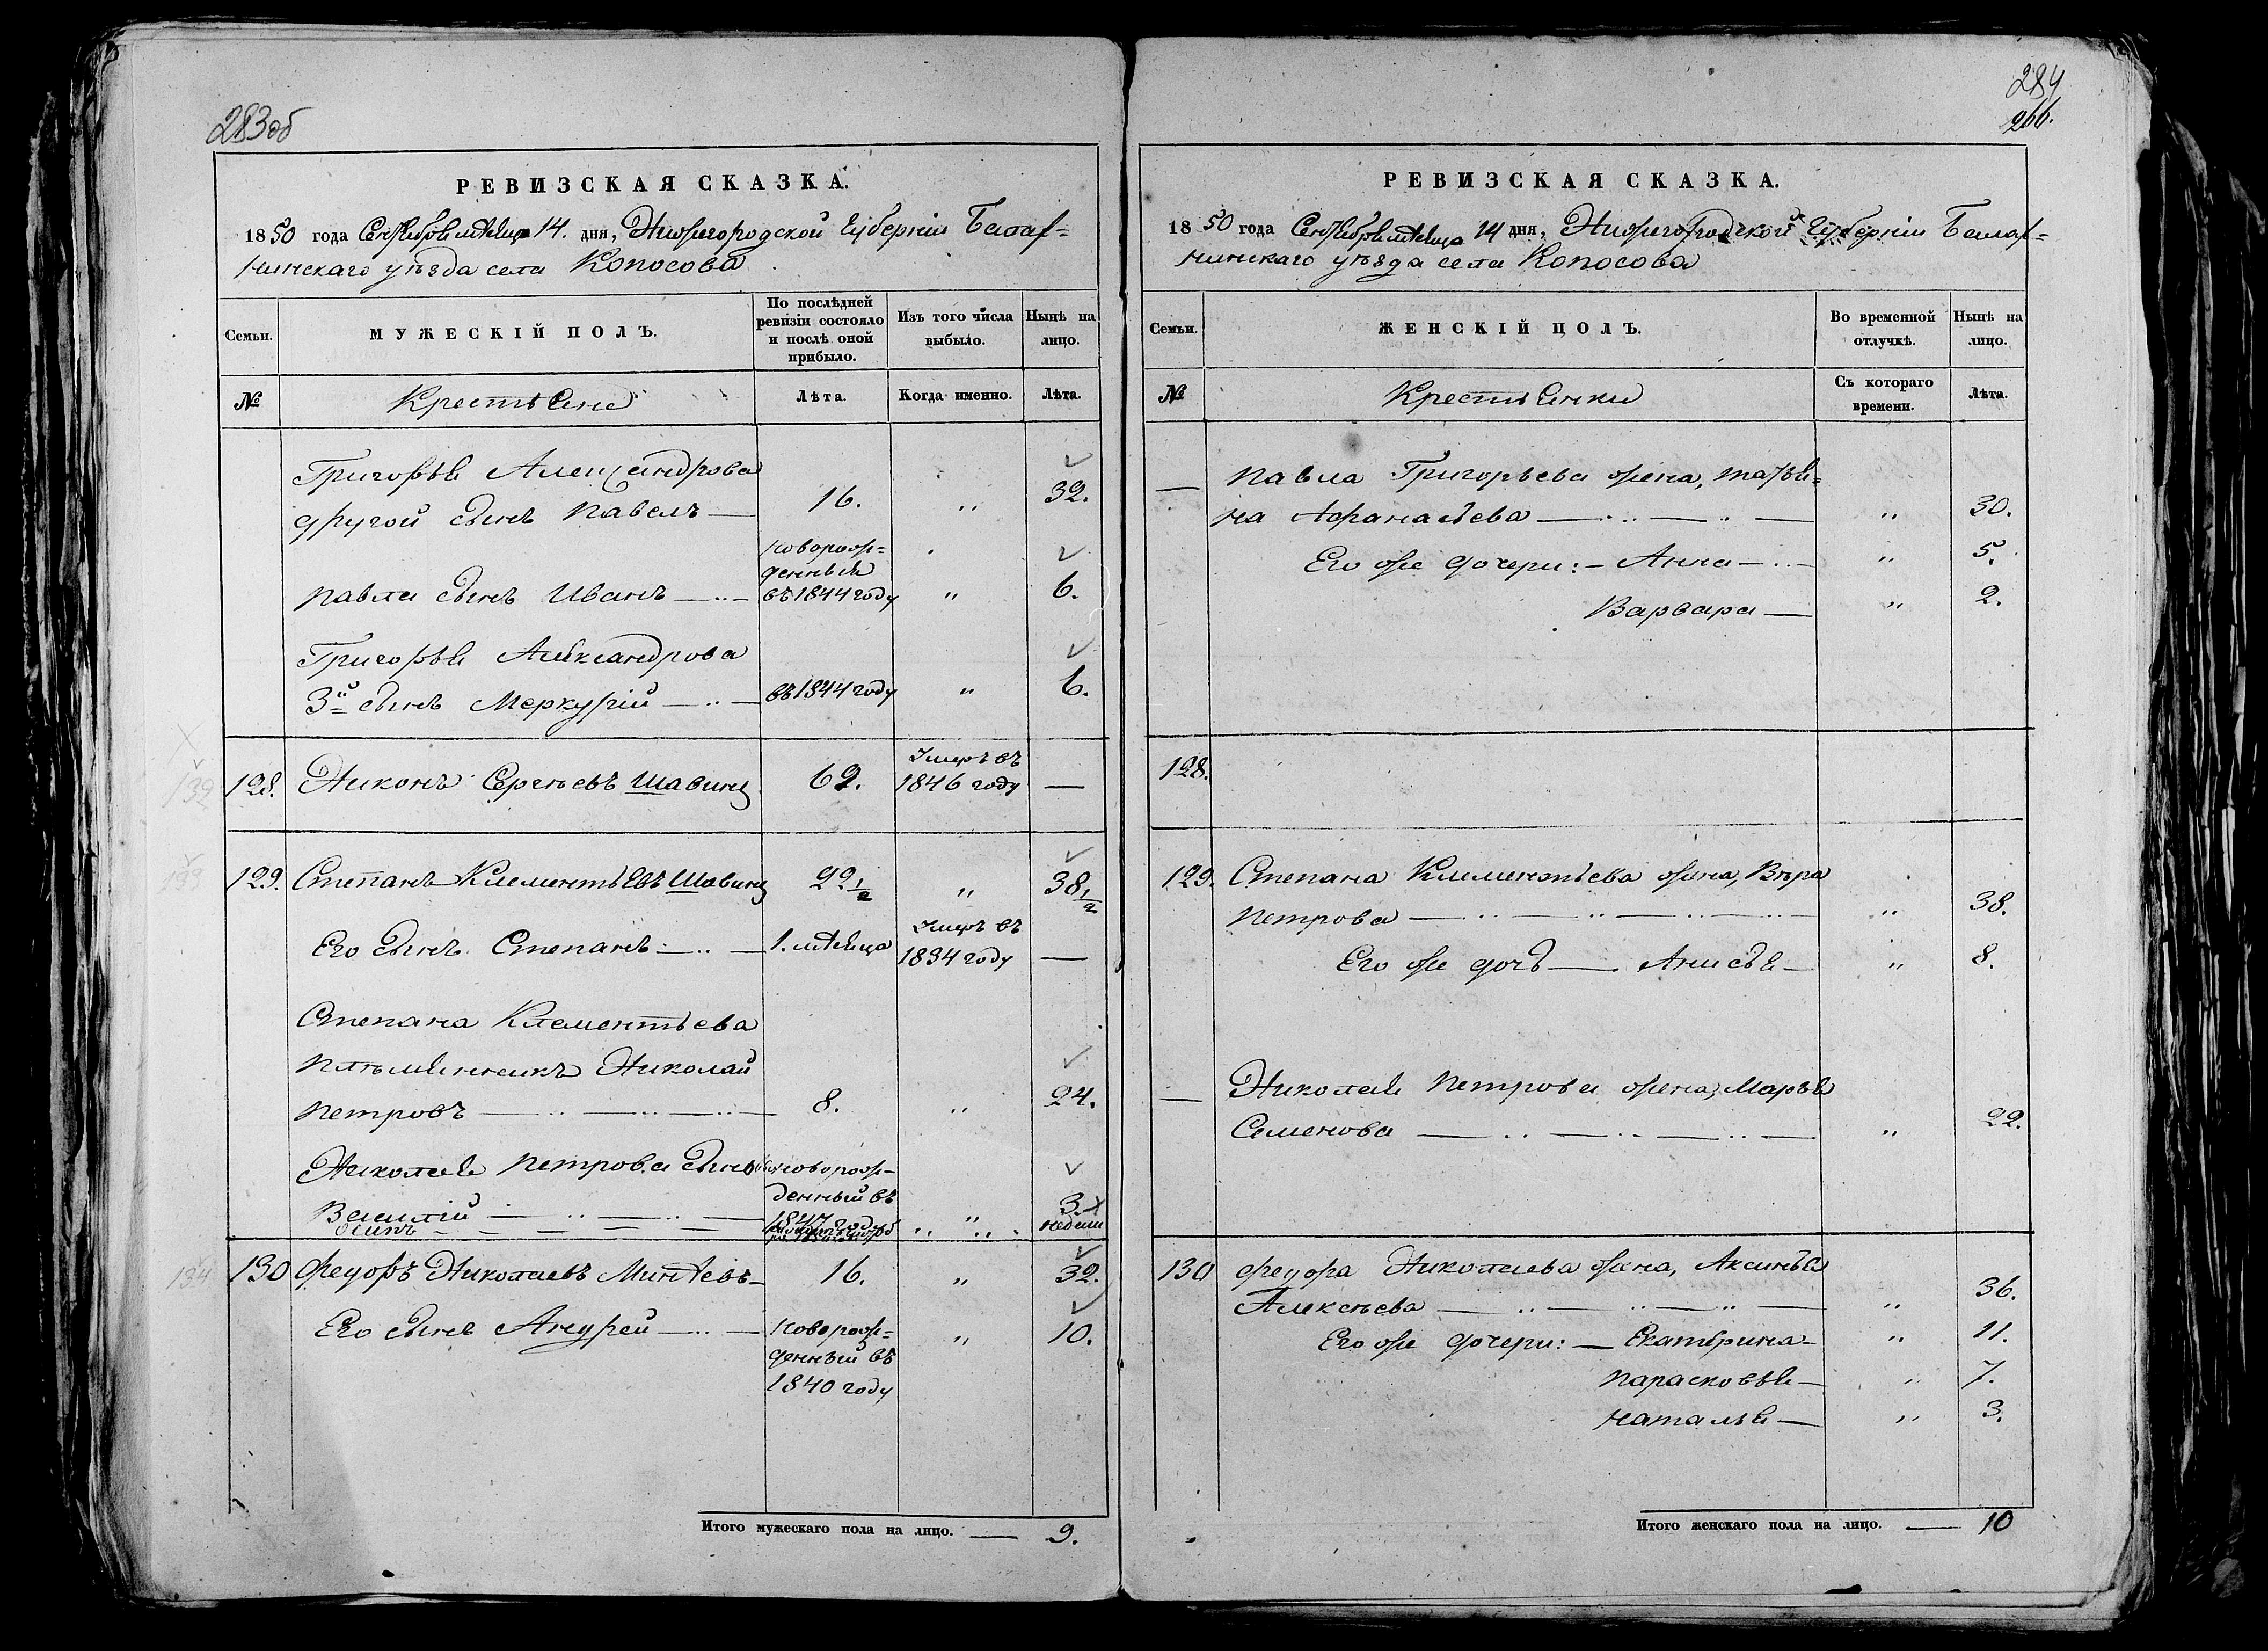 283об
РЕВИЗСКАЯ СКАЗКА.
1850 года Сентября мѣсяца 14. дня, Нижегородской Губерніи Балах=
нинскаго уѣзда села Копосова
Семьи.
МУЖЕСКІЙ ПОЛЪ.
По послѣдней ревизіи состояло и послѣ оной прибыло.
Изъ того числа выбыло.
Нынѣ на лицо.
№
Крестьяне
Лѣта.
Когда именно.
Лѣта.
Григорья Александрова
другой сынъ Павелъ — 16. „ 32.
новорож=
денный
Павла сынъ Иванъ — въ 1844 году „ 6.
Григорья Александрова
3й сынъ Меркурій — въ 1844 году „ 6.
Умеръ въ
128. Никонъ Сергѣевъ Шавинъ 62. 1846 году —
129. Степанъ Клементьевъ Шавинъ 22 1/2 „ 38 1/2
Умеръ въ
Его сынъ Степанъ — 1. мѣсяца 1834 году —
Степана Клементьева
племянникъ Николай
Петровъ — 8. „ 24.
Николая Петрова сынъ новорож-
денный въ
Василій — 1847 году „ 3.
Осипъ недели
130 Федоръ Николаевъ Минѣевъ — 16. „ 32.
Его сынъ Андрей — новорож= „ 10.
денный въ
1840 году
Итого мужескаго пола на лицо. — 9.
284
266.
РЕВИЗСКАЯ СКАЗКА.
1850 года Сентября мѣсяца 14 дня, Нижегородской Губерніи Балах=
нинскаго уѣзда села Копосова
Семьи.
ЖЕНСКІЙ ПОЛЪ.
Во временной отлучкѣ.
Нынѣ на лицо.
№
Крестьянки
Съ котораго времени.
Лѣта.
— Павла Григорьева жена, Татья=
на Афанасьева — „ 30.
Его же дочери: — Анна — „ 5.
Варвара — „ 2.
128.
129. Степана Клементьева жена, Вѣра
Петрова — „ 38.
Его же дочь — Анисья — „ 8.
— Николая Петрова жена, Марья
Семенова — „ 22.
130 Федора Николаева жена, Аксинья
Алексѣева — „ 36.
Его же дочери: — Екатерина — „ 11.
Парасковья — „ 7.
Наталья — „ 3.
Итого женскаго пола на лицо. — 10